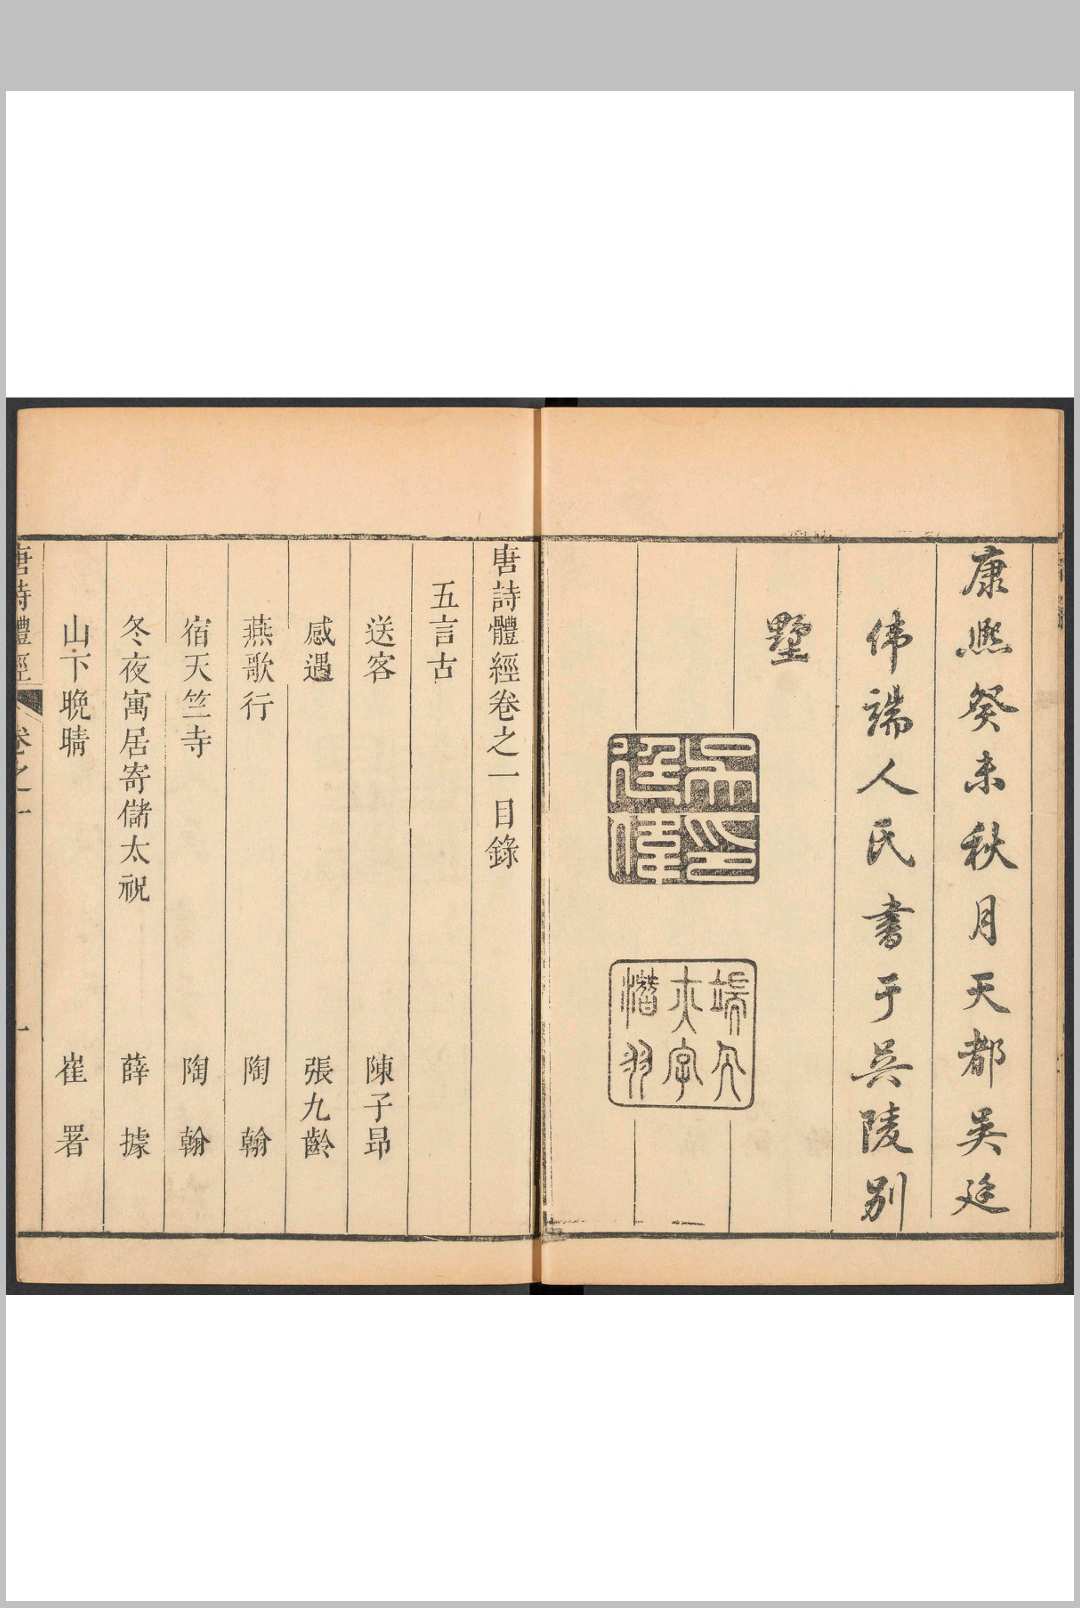 康熙癸未秋月天都吳廷
偉端人氏書于吳陵別
墅
吳廷偉印
端人亦字潛羽
唐詩體經卷之一目錄
五言古
送客 陳子昂
感遇 張九齡
燕歌行 陶翰
宿天竺寺 陶翰
冬夜寓居寄儲太祝 薛據
山下晚晴 崔署
唐詩體經 卷之一 一